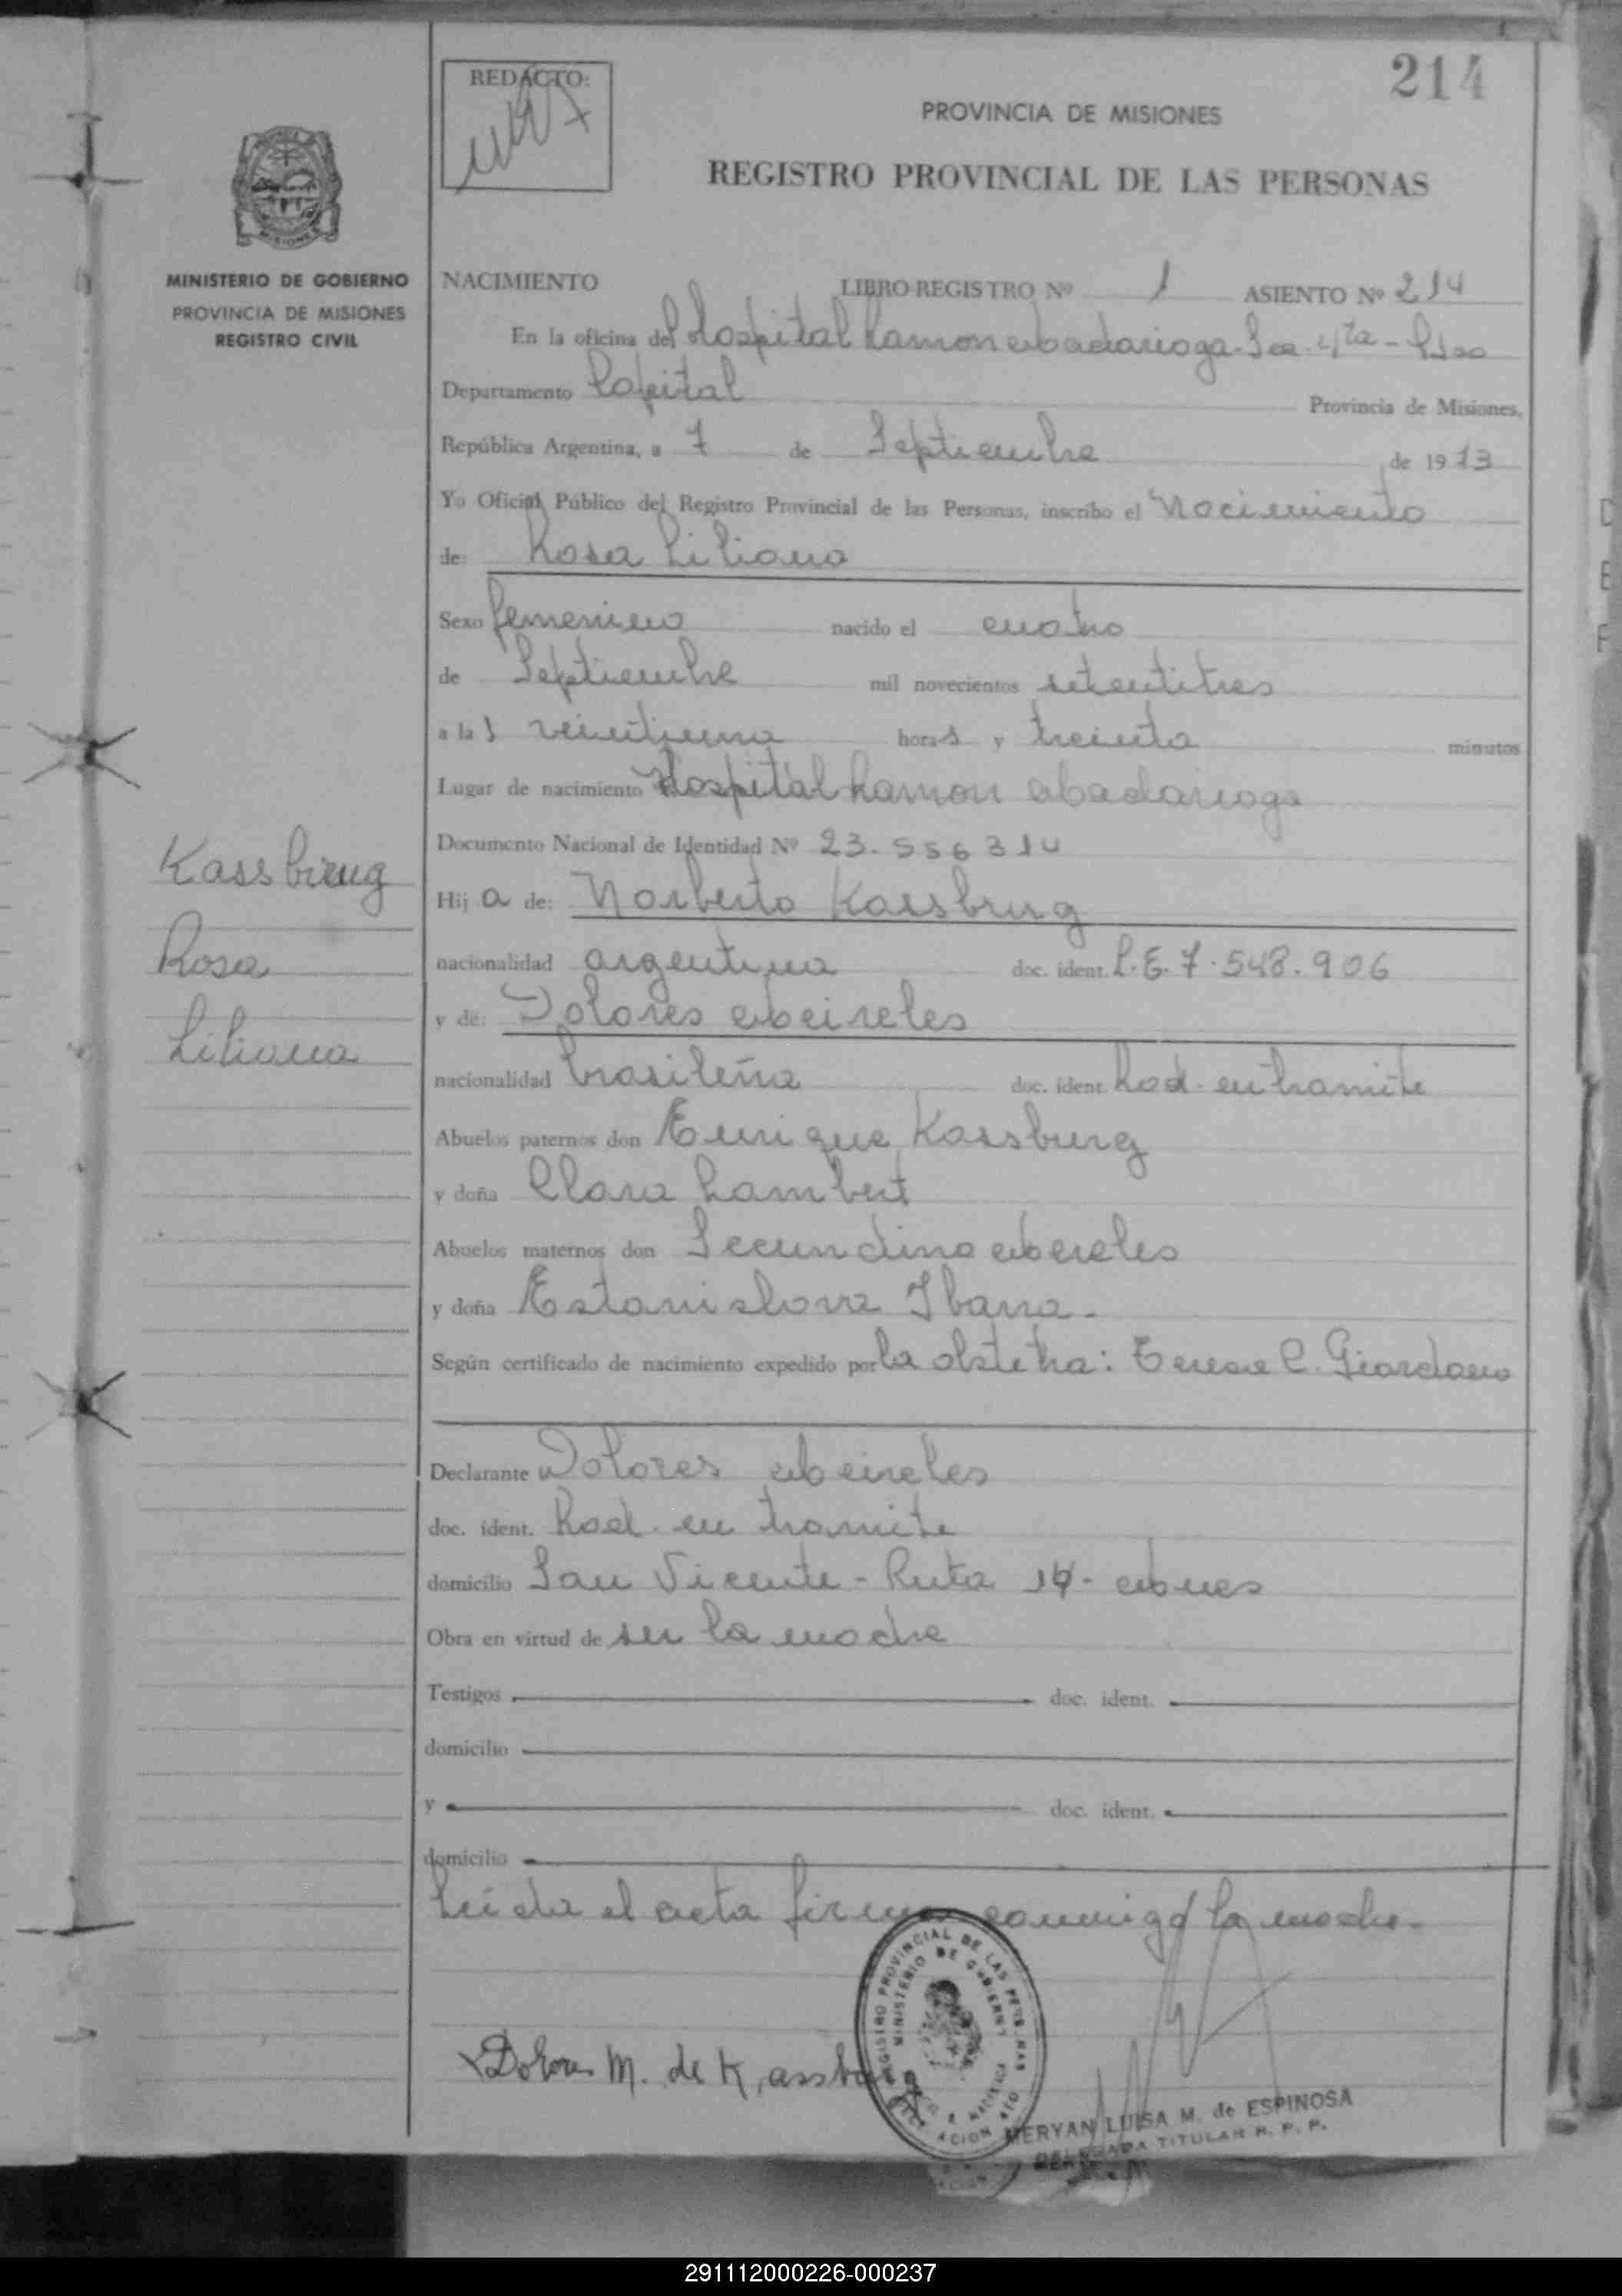 214
REDACTO:
PROVINCIA DE MISIONES
REGISTRO PROVINCIAL DE LAS PERSONAS
MISIONES
MINISTERIO DE GOBIERNO
PROVINCIA DE MISIONES
REGISTRO CIVIL
NACIMIENTO LIBRO-REGISTRO Nº 1 ASIENTO Nº 214
En la oficina del Hospital Ramon Madariaga - Sec. 4ta -
Departamento Capital Provincia de Misiones,
República Argentina, a 7 de Septiembre de 1973
Yo Oficial Público del Registro Provincial de las Personas, inscribo el Nacimiento
de: Rosa Liliana
Sexo femenino nacido el cuatro
de Septiembre mil novecientos setentitres
a las veintiuna horas y treinta minutos
Lugar de nacimiento Hospital Ramon Madariaga
Documento Nacional de Identidad Nº 23.556314
Kassburg
Rosa
Liliana
Hija de: Norberto Kassburg
nacionalidad argentina doc. ident. L.E. 7.548.906
y de: Dolores Meireles
nacionalidad brasileña doc. ident. Rad. en tramite
Abuelos paternos don Enrique Kassburg
y doña Clara Lambert
Abuelos maternos don Secundino Mereles
y doña Estanislava Ibarra -
Según certificado de nacimiento expedido por la obstetra: Teresa C. Giordano
Declarante Dolores Meireles
doc. ident. Rad. en tramite
domicilio San Vicente - Ruta 14 - Mnes
Obra en virtud de ser la madre
Testigos doc. ident.
domicilio
y doc. ident.
domicilio
Leida el acta firma conmigo la madre -
REGISTRO PROVINCIAL DE LAS PERSONAS
MINISTERIO DE GOBIERNO
Dolores M. de Kassburg
MERYAN LUISA M. de ESPINOSA
DELEGADA TITULAR R. P. P.
291112000226-000237